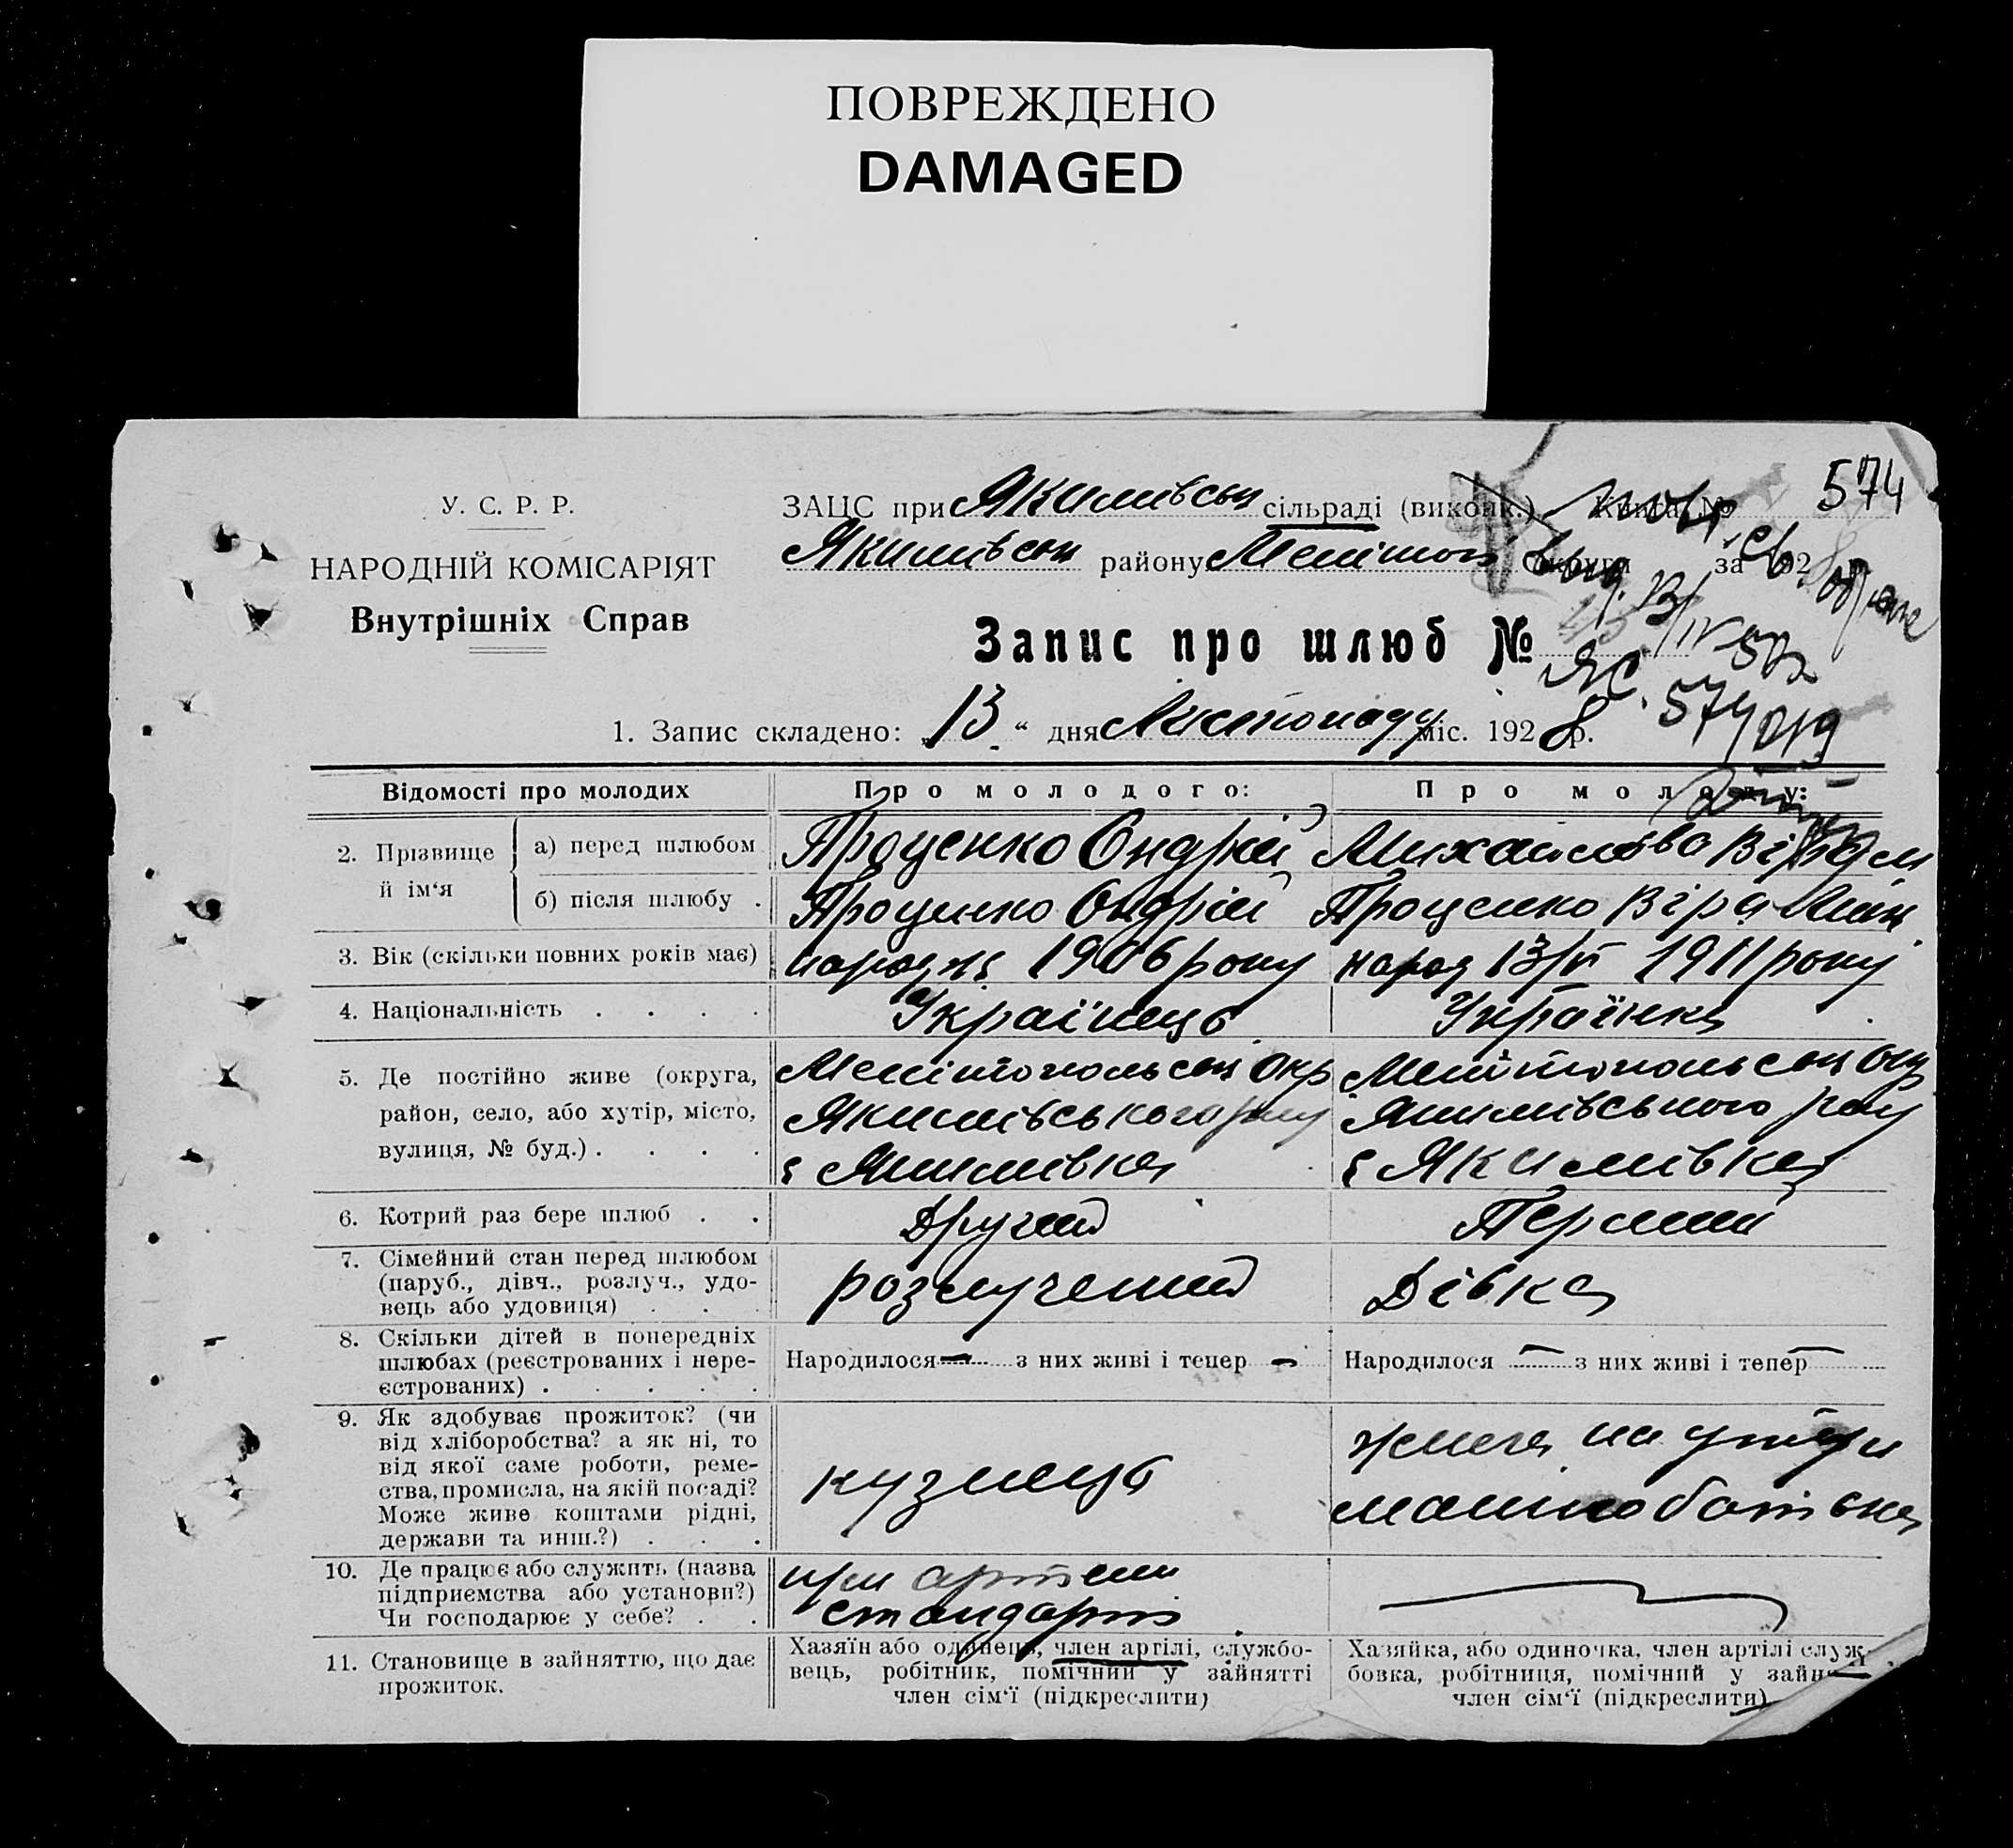 ПОВРЕЖДЕНО
DAMAGED
574
У. С. Р. Р.
НАРОДНІЙ КОМІСАРІЯТ
Внутрішніх Справ
ЗАЦС при Якимівськ сільраді (виконк.) Книга №
Якимівськ району Меліт округи за 192
Запис про шлюб №
574
1. Запис складено: „13“ дня Листопаду міс. 1928 р.
Відомості про молодих
Про молодого:
Про молоду:
2. Прізвище й ім‘я
а) перед шлюбом
Проценко Ондрій
Михайлова Віра
б) після шлюбу .
Проценко Ондрій
Проценко Віра
3. Вік (скільки повних років має)
1906 року
народ 13/VI 1911 року
4. Національність . . . .
Українець
Українка
5. Де постійно живе (округа, район, село, або хутір, місто, вулиця, № буд.) . . . .
Мелітопольськ Окр
Якимівського р-ну
с Якимівка
Мелітопольськ Окр
Якимівського р-ну
с Якимівка
6. Котрий раз бере шлюб . .
Другий
Перший
7. Сімейний стан перед шлюбом (паруб., дівч., розлуч., удовець або удовиця) . . .
розлучений
Дівка
8. Скільки дітей в попередніх шлюбах (реєстрованих і нереєстрованих) . . . . .
Народилося — з них живі і тепер —
Народилося — з них живі і тепер —
9. Як здобуває прожиток? (чи від хліборобства? а як ні, то від якої саме роботи, ремества, промисла, на якій посаді? Може живе коштами рідні, держави та инш.?) . . .
кузнець
на
10. Де працює або служить (назва підприємства або установи?) Чи господарює у себе? . .
при артели
стандарт
11. Становище в зайняттю, що дає прожиток.
Хазяїн або одинець, член артілі, службовець, робітник, помічний у зайнятті член сім‘ї (підкреслити)
Хазяйка, або одиночка, член артілі служ-
бовка, робітниця, помічний у
член сім‘ї (підкреслити)